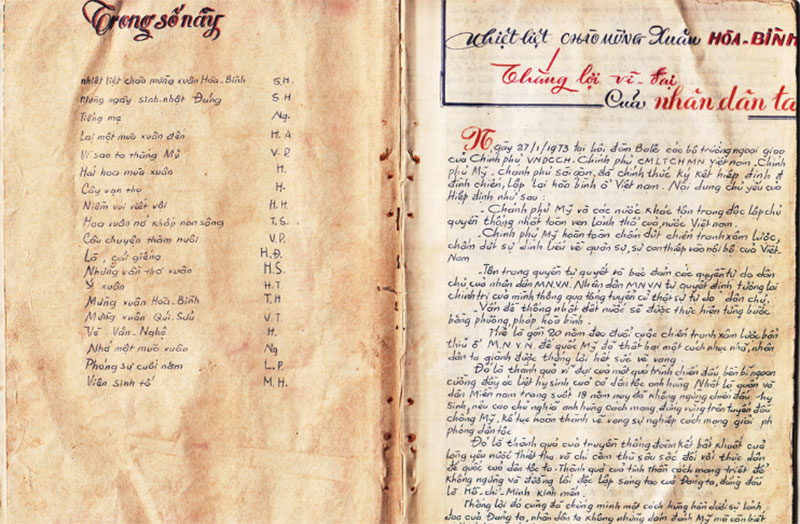 Trong số này
nhiệt liệt chào mừng xuân Hòa-Bình S.H.
Mừng ngày sinh-nhật Đảng S.H
Tiếng mẹ Ng.
Lại một mùa xuân đến H.A
Vì sao ta thắng Mỹ V.P.
Hái hoa mùa xuân H.
Cây vạn thọ H.
Niềm vui viết vội H.H.
Hoa xuân nở khắp non sông T.S.
Câu chuyện thăm nuôi V.P.
Lá, giếng H.Đ.
Những vần thơ xuân H.S.
Ý xuân H.T.
Mừng xuân Hòa-Bình T.H
Mừng xuân Qúi-Sửu V.T.
Về Văn-Nghệ H.
Nhớ một mùa xuân Ng
Phóng sự cuối năm L.P.
Viên sinh tố M.H.
Nhiệt-liệt CHÀO MỪNG Xuân HÒA-BÌNH
Thắng lợi vĩ-đại
Của nhân dân ta
Ngày 27/1/1973 tại hội đàm Balê các bộ trưởng ngoại giao
của Chính phủ VNDCCH. Chính phủ CMLTCHMN Việt nam. Chính
phủ Mỹ. Chánh phủ Sài gòn, đã chính thức ký kết hiệp định
đình chiến, lập lại hòa bình ở Việt nam. Nội dung chủ yếu của
Hiệp định như sau:
- Chánh phủ Mỹ và các nước khác tôn trọng độc lập chủ
quyền thống nhất toàn vẹn lãnh thổ của nước Việt nam.
- Chính phủ Mỹ hoàn toàn chấm dứt chiến tranh xâm lược,
chấm dứt sự dính líu về quân sự, sự can thiệp vào nội bộ của Việt-
Nam
- Tôn trọng quyền tự quyết và bảo đảm các quyền tự do dân
chủ của nhân dân M.N.V.N. Nhân dân MNVN tự quyết định tương lai
chính trị của mình thông qua tổng tuyển cử thật sự tự do dân chủ.
- Vấn đề thống nhất đất nước sẽ được thực hiện từng bước
bằng phương pháp hòa bình.
Thế là gần 20 năm đeo đuổi cuộc chiến tranh xâm lược bẩn
thỉu ở M.N.V.N. đế quốc Mỹ đã thất bại một cách nhục nhã, nhân
dân ta giành được thắng lợi hết sức vẻ vang.
Đó là thành quả vĩ đại của một quá trình chiến đấu bền bỉ ngoan
cường đầy ác liệt hy sinh của cả dân tộc anh hùng. Nhất là quân và
dân Miền nam trong suốt 18 năm nay đã không ngừng chiến đấu hy
sinh, nêu cao chủ nghĩa anh hùng cách mạng, đứng vững trên tuyến đầu
chống Mỹ, kế tục hoàn thành vẻ vang sự nghiệp cách mạng giải ph
phóng dân tộc
Đó là thành quả của truyền thống đoàn kết bất khuất của
lòng yêu nước thiết tha và chí căm thù sâu sắc đối với thực dân
đế quốc của dân tộc ta. Thành quả của tinh thần cách mạng triệt để
không ngừng và đường lối độc lập sáng tạo của Đảng ta, đứng đầu
là Hồ-chí-Minh kính mến.
Thắng lợi đó cũng đã chứng minh một cách hùng hồn dưới sự lãnh
đạo của Đảng ta, nhân dân ta không những dám đánh Mỹ mà còn biết